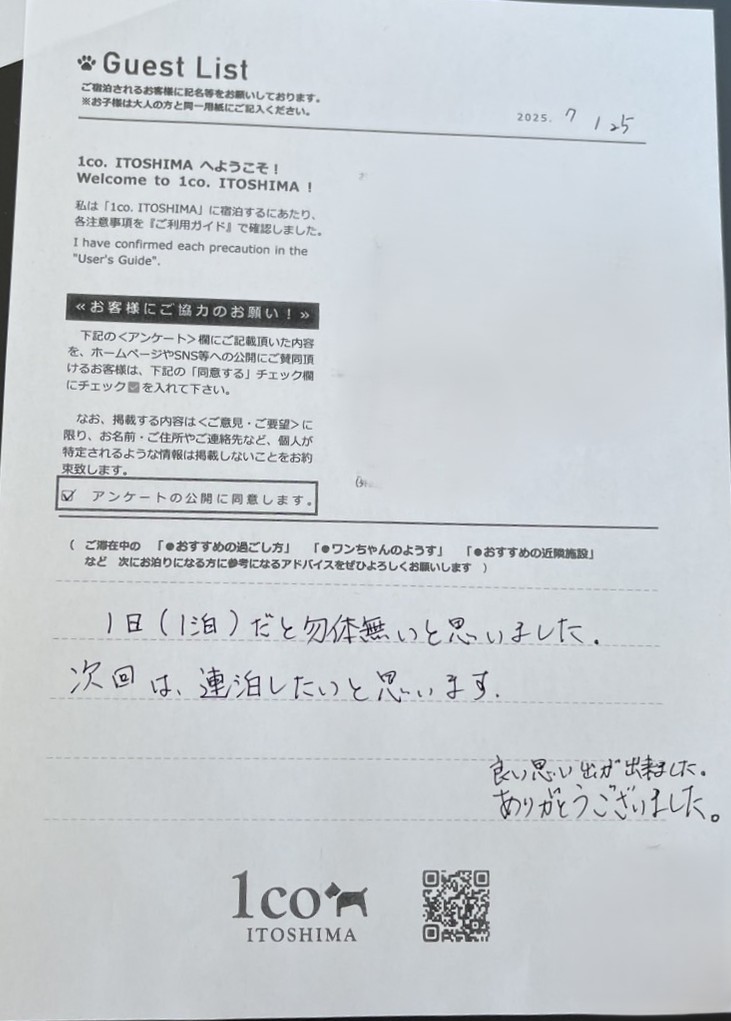 Guest List
ご宿泊されるお客様に記名等をお願いしております。
※お子様は大人の方と同一用紙にご記入ください。
2025. 7 / 25
1co. ITOSHIMA へようこそ！
Welcome to 1co. ITOSHIMA !
私は「1co. ITOSHIMA」に宿泊するにあたり、
各注意事項を『ご利用ガイド』で確認しました。
I have confirmed each precaution in the
"User's Guide".
≪お客様にご協力のお願い！≫
下記の＜アンケート＞欄にご記載頂いた内容
を、ホームページやSNS等への公開にご賛同頂
けるお客様は、下記の「同意する」チェック欄
にチェック☑を入れて下さい。
なお、掲載する内容は＜ご意見・ご要望＞に
限り、お名前・ご住所やご連絡先など、個人が
特定されるような情報は掲載しないことをお約
束致します。
☑ アンケートの公開に同意します。
( ご滞在中の 「●おすすめの過ごし方」 「●ワンちゃんのようす」 「●おすすめの近隣施設」
など 次にお泊りになる方に参考になるアドバイスをぜひよろしくお願いします )
1日(1泊)だと勿体無いと思いました.
次回は、連泊したいと思います.
良い思い出が出来ました。
ありがとうございました。
1co
ITOSHIMA